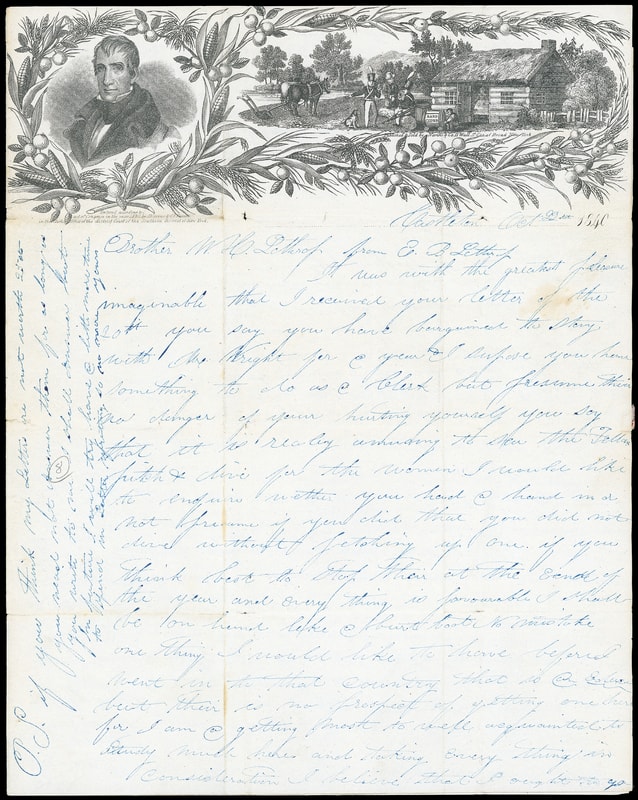 Castleton Oct 22nd 1840
Brother W. C. Lothrop from E. B Lothrop
It was with the greatest pleasure
imaginable that I received your letter of the
20th you say you have bargained to stay
with Mr. Wright for a year & I supose you have
something to do as a Clerk but presume their
no danger of your hurting yourself you say
that it is realy amusing to see the Fellows
pitch & dive for the women I would like
to enquire wether you had a hand in a
not presume if you did that you did not
dive without fetching up one. if you
think best to Stop their at the end of
the year and every thing is favourable I shall
be on hand like a
one thing I would like to have before I
went in to that country that is a
but their is no prospect of getting one here
for I am a getting most to well acquainted to
much here and taking every thing in
Consideration I believe that I ought to go
P.S. if you think my Letters are not worth 25 cts
you need not answer them for as long as
you write to one I shall answer that
In future I will try have a little more time
to spend in Letter Writing so no more yours